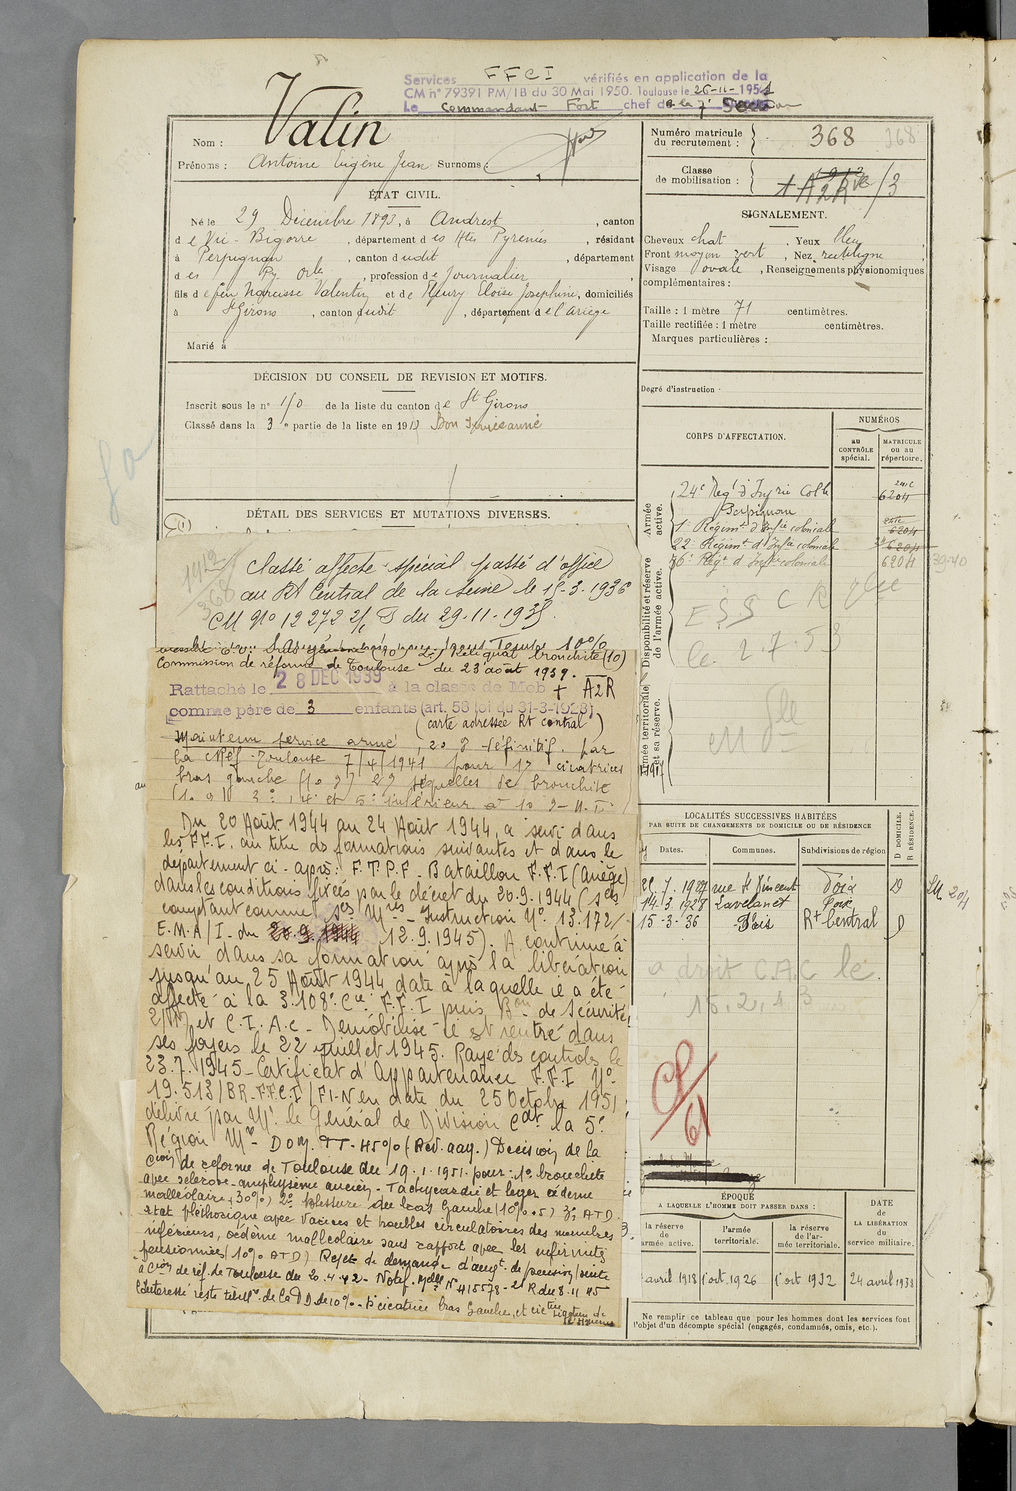 Services FFCI vérifiés en application de la
CM n° 79391 PM/1B du 30 Mai 1950. Toulouse le 26-11-1951
Le Commandant Fort chef de la 7e Section
Nom : Valin
Prénoms : Antoine Eugène Jean Surnoms :
Numéro matricule du recrutement : 368 368
Classe de mobilisation :
ÉTAT CIVIL.
Né le 29 Décembre 1893, à Andrest, canton
de Vic-Bigorre, département des Htes Pyrénées, résidant
à Perpignan, canton dudit, département
des Py. Orles, profession de Journalier,
fils de feu Narcisse Valentin et de Fleury Eloïse Josephine, domiciliés
à St Girons, canton dudit, département de l'Ariège
Marié à
DÉCISION DU CONSEIL DE REVISION ET MOTIFS.
Inscrit sous le n° 150 de la liste du canton de St Girons
Classé dans la 3e partie de la liste en 1913
DÉTAIL DES SERVICES ET MUTATIONS DIVERSES.
1912
368
Classé affecté spécial passé d'office
au Rt Central de la Seine le 15-3-1936
CM No 12272 du 29-11-1935.
Commission de réforme de Toulouse du 23 août 1939.
Rattaché le 28 DEC 1939 à la classe de Mob + A2R
comme père de 3 enfants (art. 58 loi du 31-3-1928)
(carte adressée Rt central)
Maintenu service armé, définitif. par
la CRéf. Toulouse 7/4/1941 pour 1° cicatrices
bras gauche 2° séquelles de bronchite
Du 20 Août 1944 au 24 Août 1944, a servi dans
les F.F.I. au titre des formations suivantes et dans le
département ci-après : F.T.P.F. Bataillon F.F.I (Ariège)
dans les conditions fixées par le décret du 20.9.1944 (ses
comptant comme ses Mres - Instruction No. 13.172/
E.M.A/I. du 12.9.1945). A continué à
servir dans sa formation après la libération
jusqu'au 25 Août 1944 date à laquelle il a été
affecté à la 3.108e Cie F.F.I puis Bon de Sécurité
et C.I.A.C - Démobilisé le et rentré dans
ses foyers le 22 juillet 1945. Rayé des contrôles le
23.7.1945 - Certificat d'Appartenance F.F.I No
19.513/BR-FFCI/FIN en date du 25 Octobre 1951
délivré par Mr. le Général de Division Cdt la 5e
Région Mre - Dom. TT-45% (Rev. agg.) Décision de la
Cion de réforme de Toulouse du 19.1.1951 pour : 1° bronchite
avec sclérose-emphysème ancien - Tachycardie et léger œdème
malléolaire, 30%) 2° blessure du bras Gauche (10% +5) 3° ATD.
état pléthorique avec varices et troubles circulatoires des membres
inférieurs, œdème malléolaire sans rapport avec les infirmités
pensionnées (10% ATD) Rejet de demande d'augt. de pension, suite
à Cion de réf. de Toulouse du 20.4.42 - Notif. Melle No 415578 - 2e R du 8.11.45
L'intéressé reste titre. de la P.D de 10% - cicatrice bras Gauche
SIGNALEMENT.
Cheveux chat, Yeux bleu,
Front moyen vert, Nez rectiligne,
Visage ovale, Renseignements physionomiques
complémentaires :
Taille : 1 mètre 71 centimètres.
Taille rectifiée : 1 mètre centimètres.
Marques particulières :
Degré d'instruction :
CORPS D'AFFECTATION.
NUMÉROS
au CONTRÔLE spécial.
MATRICULE ou au répertoire.
Armée active.
24e Regt d'Infrie Colle 6204
Perpignan
1er Régiment d'Infie coloniale 6204
22e Régiment d'Infie coloniale 6204
Regt d'Infie coloniale 6204 39-40
Disponibilité et réserve de l'armée active.
le 2.7.53
Armée territoriale et sa réserve.
LOCALITÉS SUCCESSIVES HABITÉES
PAR SUITE DE CHANGEMENTS DE DOMICILE OU DE RÉSIDENCE
Dates.
Communes.
Subdivisions de région
D DOMICILE.
R RÉSIDENCE.
22.7.1927 rue St Vincent Foix D
14.3.1928 Lavelanet Foix
15-3-36 Paris Rt Central D
a droit C.A.C le
15.2.43
CP/61
ÉPOQUE
A LAQUELLE L'HOMME DOIT PASSER DANS :
DATE de LA LIBÉRATION du service militaire.
la réserve de l'armée active.
l'armée territoriale.
la réserve de l'armée territoriale.
avril 1918
1er oct. 1926
1er oct 1932
24 avril 1938
Ne remplir ce tableau que pour les hommes dont les services font
l'objet d'un décompte spécial (engagés, condamnés, omis, etc.).